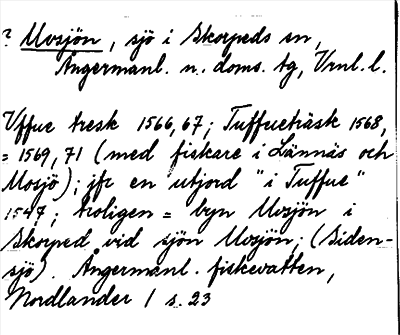 ? Mosjön, sjö i Skorpeds sn,
Ångermanl. n. doms. tg, Vrnl. l.
Uffue tresk 1566, 67; Tuffueträsk 1568,
= 1569, 71 (med fiskare i Lännäs och
Mosjö); jfr en utjord "i Tuffue"
1547; troligen = byn Mosjön i
Skorped vid sjön Mosjön; (Siden-
sjö). Ångermanl. fiskevatten,
Nordlander 1 s. 23